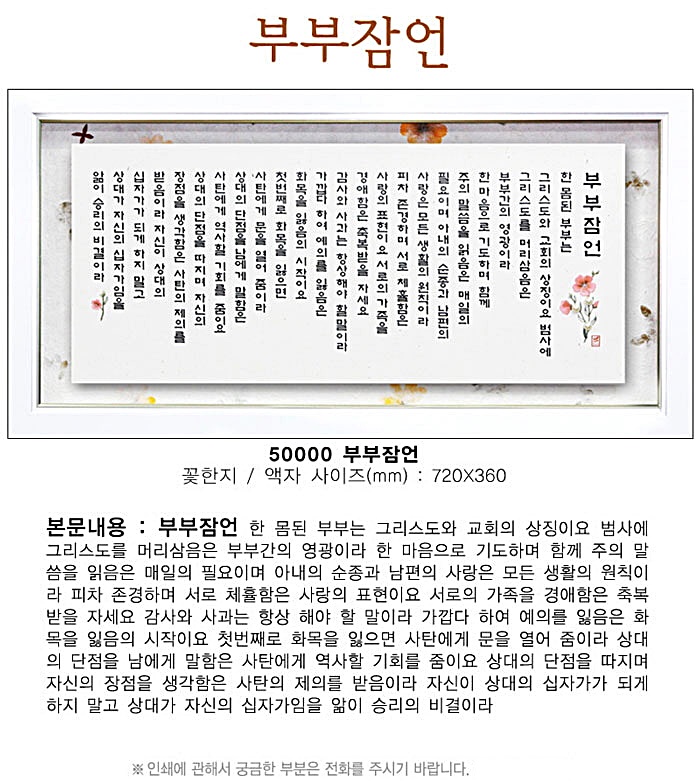 부부잠언
부부잠언
한 몸된 부부는
그리스도와 교회의 상징이요 범사에
그리스도를 머리삼음은
부부간의 영광이라
한마음으로 기도하며 함께
주의 말씀을 읽음은 매일의
필요이며 아내의 순종과 남편의
사랑은 모든 생활의 원칙이라
피차 존경하며 서로 체휼함은
사랑의 표현이요 서로의 가족을
경애함은 축복받을 자세요
감사와 사과는 항상해야 할말이라
가깝다 하여 예의를 잃음은
화목을 잃음의 시작이요
첫번째로 화목을 잃으면
사탄에게 문을 열어 줌이라
상대의 단점을 남에게 말함은
사탄에게 역사할 기회를 줌이요
상대의 단점을 따지며 자신의
장점을 생각함은 사탄의 제의를
받음이라 자신이 상대의
십자가가 되게 하지 말고
상대가 자신의 십자가임을
앎이 승리의 비결이라
50000 부부잠언
꽃한지 / 액자 사이즈(mm) : 720X360
본문내용 : 부부잠언 한 몸된 부부는 그리스도와 교회의 상징이요 범사에
그리스도를 머리삼음은 부부간의 영광이라 한 마음으로 기도하며 함께 주의 말
씀을 읽음은 매일의 필요이며 아내의 순종과 남편의 사랑은 모든 생활의 원칙이
라 피차 존경하며 서로 체휼함은 사랑의 표현이요 서로의 가족을 경애함은 축복
받을 자세요 감사와 사과는 항상 해야 할 말이라 가깝다 하여 예의를 잃음은 화
목을 잃음의 시작이요 첫번째로 화목을 잃으면 사탄에게 문을 열어 줌이라 상대
의 단점을 남에게 말함은 사탄에게 역사할 기회를 줌이요 상대의 단점을 따지며
자신의 장점을 생각함은 사탄의 제의를 받음이라 자신이 상대의 십자가가 되게
하지 말고 상대가 자신의 십자가임을 앎이 승리의 비결이라
※ 인쇄에 관해서 궁금한 부분은 전화를 주시기 바랍니다.